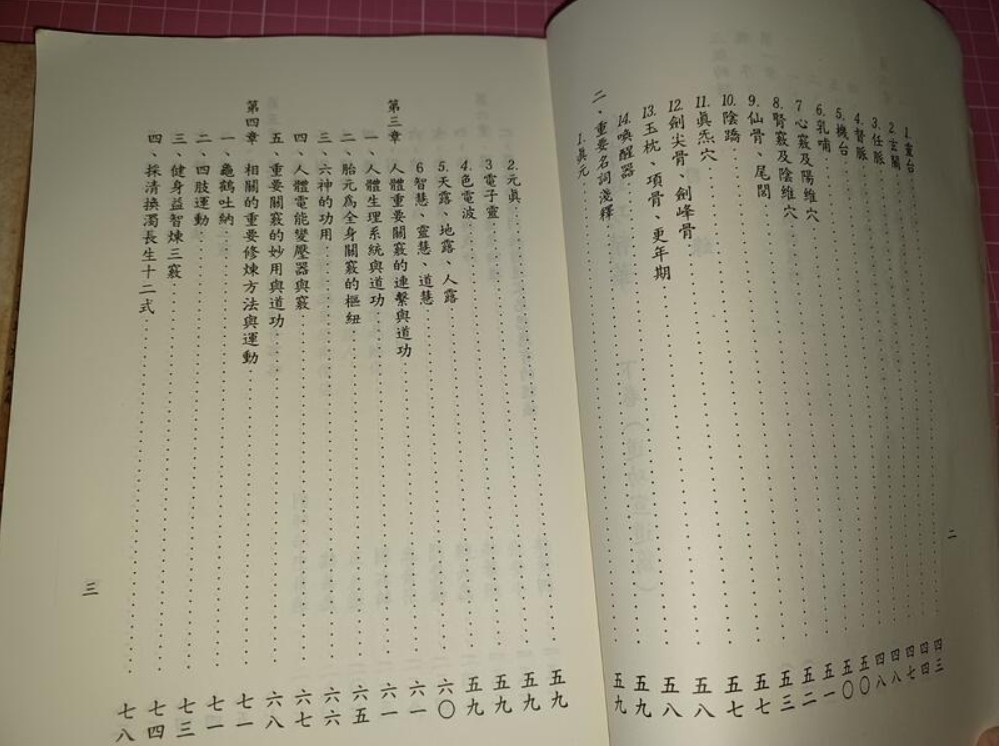 1.靈台 四三
2.玄關 四四
3.任脈 四七
4.督脈 四八
5.機台 四八
6.乳喃 五〇
7心竅及陽維穴 五〇
8.腎竅及陰維穴 五一
9.仙骨、尾閭 五三
10.陰蹻 五七
11.眞炁穴 五七
12.劍尖骨、劍峰骨 五八
13.玉枕、項骨、更年期 五八
14.喚醒器 五九
二、重要名詞淺釋
1.眞元 五九
二
2.元眞 五九
3電子靈 五九
4.色電波 五九
5.天露、地露、人露 五九
6智慧、靈慧、道慧 六〇
第三章 人體重要關竅的連繫與道功 六一
一、人體生理系統與道功 六一
二、胎元爲全身關竅的樞紐 六五
三、六神的功用 六六
四、人體電能變壓器與竅 六七
五、重要關竅的妙用與道功 六八
第四章 相關的重要修煉方法與運動 七一
一、龜鶴吐納 七一
二、四肢運動 七三
三、健身益智煉三竅 七四
四、採清換濁長生十二式 七八
三